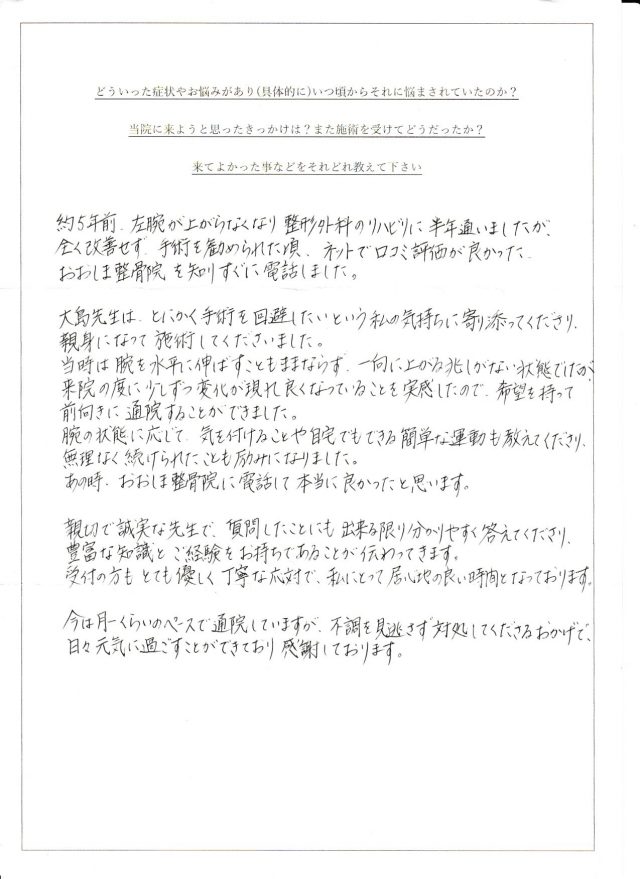 どういった症状やお悩みがあり(具体的に)いつ頃からそれに悩まされていたのか?
当院に来ようと思ったきっかけは?また施術を受けてどうだったか?
来てよかった事などをそれどれ教えて下さい
約5年前、左腕が上がらなくなり整形外科のリハビリに半年通いましたが、
全く改善せず、手術を勧められた頃、ネットで口コミ評価が良かった、
おおしま整骨院を知りすぐに電話しました。
大島先生は、とにかく手術を回避したいという私の気持ちに寄り添ってくださり、
親身になって施術してくださいました。
当時は腕を水平に伸ばすこともままならず、一向に上がる兆しがない状態でしたが、
来院の度に少しずつ変化が現れ良くなっていることを実感したので、希望を持って
前向きに通院することができました。
腕の状態に応じて、気を付けることや自宅でもできる簡単な運動も教えてくださり、
無理なく続けられたことも励みになりました。
あの時、おおしま整骨院に電話して本当に良かったと思います。
親切で誠実な先生で、質問したことにも出来る限り分かりやすく答えてくださり、
豊富な知識とご経験をお持ちであることが伝わってきます。
受付の方もとても優しく丁寧な応対で、私にとって居心地の良い時間となっております。
今は月一くらいのペースで通院していますが、不調を見逃さず対処してくださるおかげで、
日々元気に過ごすことができており感謝しております。